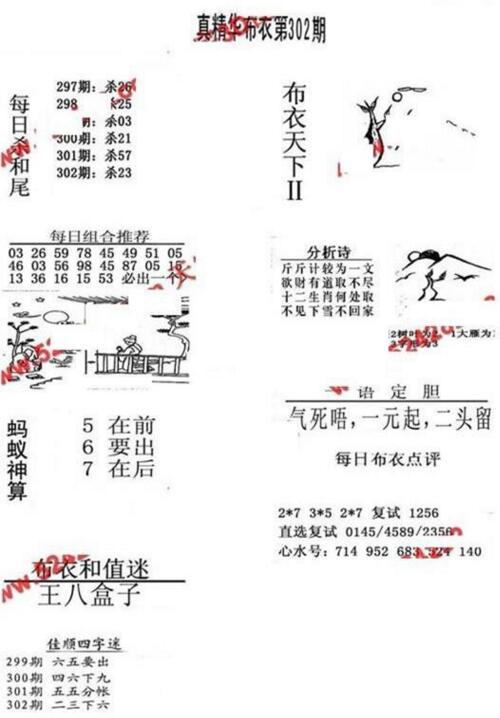 真精华布衣第302期
每日杀和尾
297期: 杀26
298 杀25
期: 杀03
300期: 杀21
301期: 杀57
302期: 杀23
布衣天下II
每日组合推荐
03 26 59 78 45 49 51 05
46 03 56 98 45 87 05 16
13 36 16 15 53 必出一个
分析诗
斤斤计较为一文
欲财有道取不尽
十二生肖何处取
不见下雪不回家
2树叶为2 1大雁为
3字形为3
蚂蚁神算
5 在前
6 要出
7 在后
一语定胆
气死唔,一元起,二头留
每日布衣点评
2*7 3*5 2*7 复试 1256
直选复试 0145/4589/2356
心水号: 714 952 683 524 140
布衣和值迷
王八盒子
佳顺四字迷
299期 六五要出
300期 四六下九
301期 五五分帐
302期 二三下六